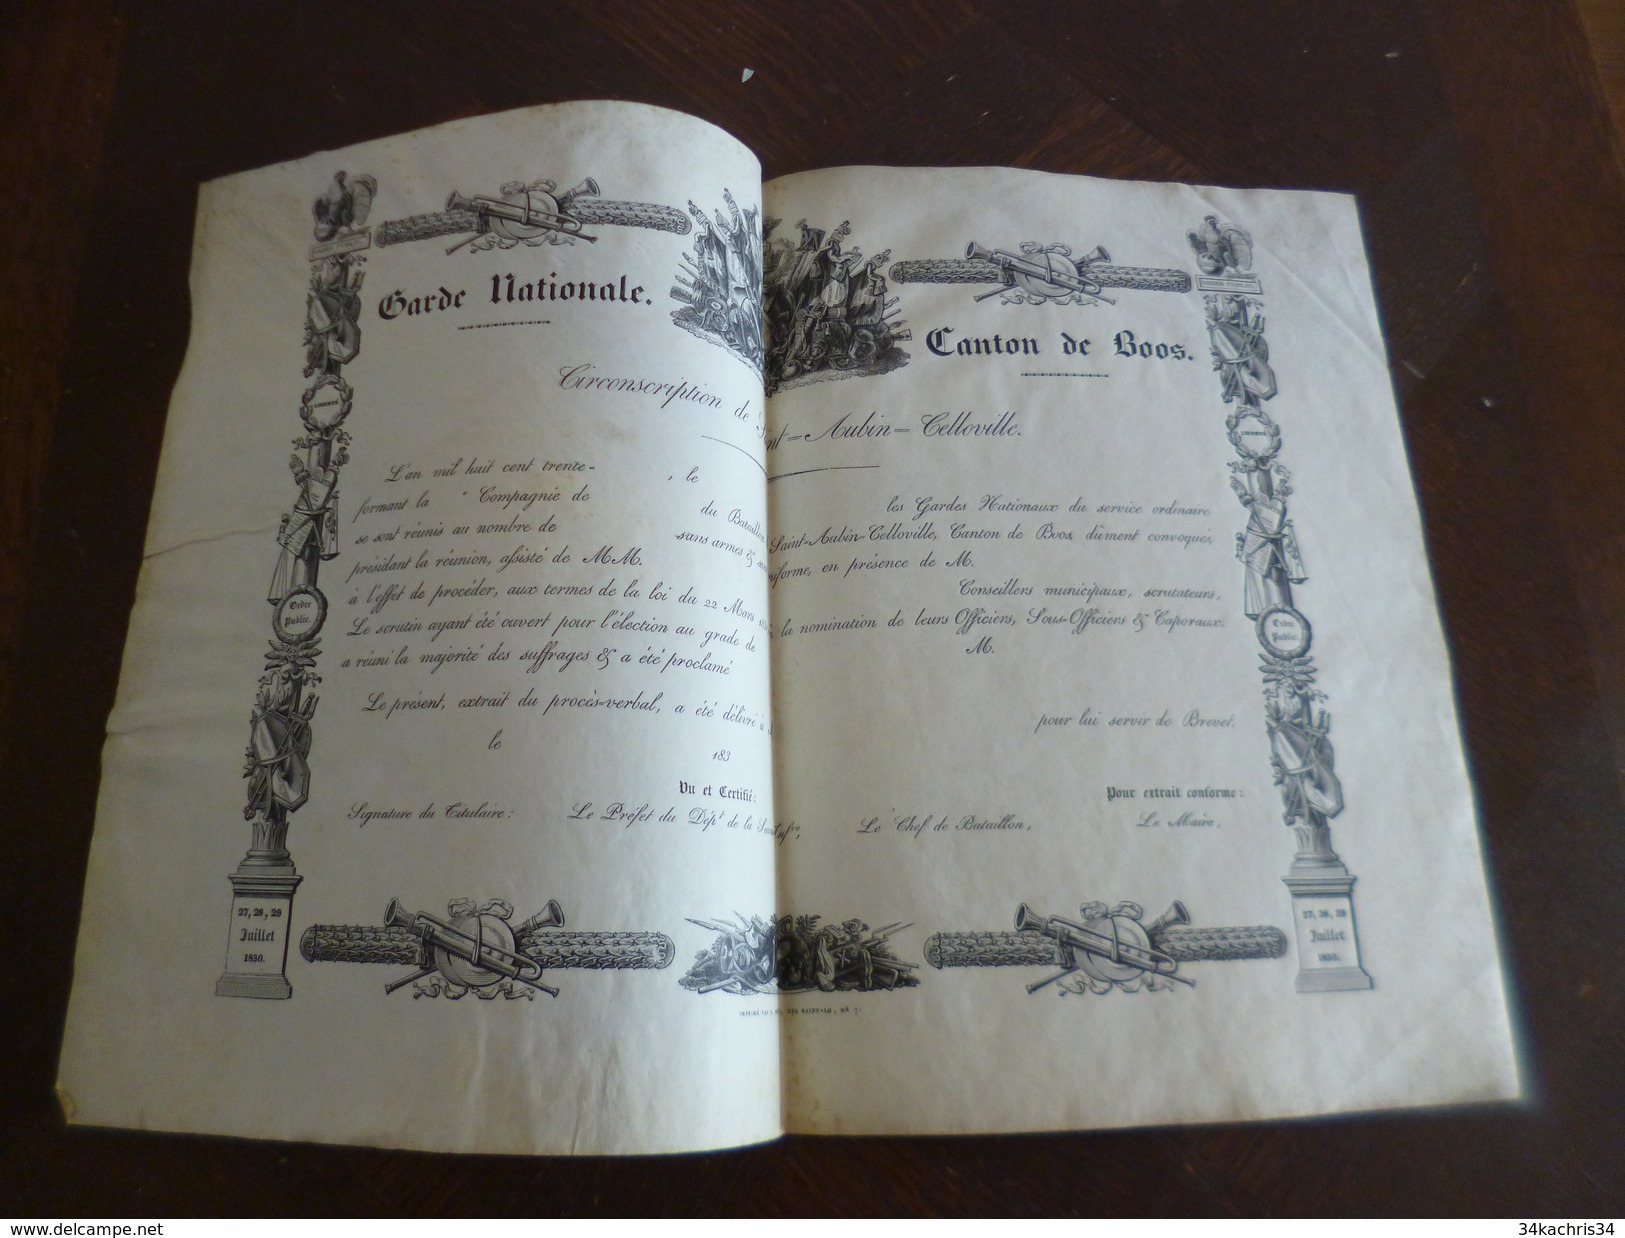 Garde Nationale.
Canton de Boos.
Circonscription de Saint=Aubin=Celloville.
L'an mil huit cent trente- , le les Gardes Nationaux du service ordinaire
formant la e Compagnie de du Bataillon Saint=Aubin=Celloville, Canton de Boos, dûment convoqués,
se sont réunis au nombre de sans armes & uniforme, en présence de M.
présidant la réunion, assisté de MM. Conseillers municipaux, scrutateurs,
à l'effet de procéder, aux termes de la loi du 22 Mars la nomination de leurs Officiers, Sous-Officiers & Caporaux.
Le scrutin ayant été ouvert pour l'élection au grade de M.
a réuni la majorité des suffrages & a été proclamé
Le présent, extrait du procès-verbal, a été délivré à pour lui servir de Brevet.
le 183
Vu et Certifié:
Pour extrait conforme:
Signature du Titulaire: Le Préfet du Dépt de la Seine Infre, Le Chef de Bataillon, Le Maire,
LIBERTÉ
Ordre
Public.
27, 28, 29
Juillet
1830.
ORDRE PUBLIC
LIBERTÉ
Ordre
Public.
27, 28, 29
Juillet
1830.
IMPRIMÉ PAR RUE SAINT-LO, No 7.
www.delcampe.net
34kachris34